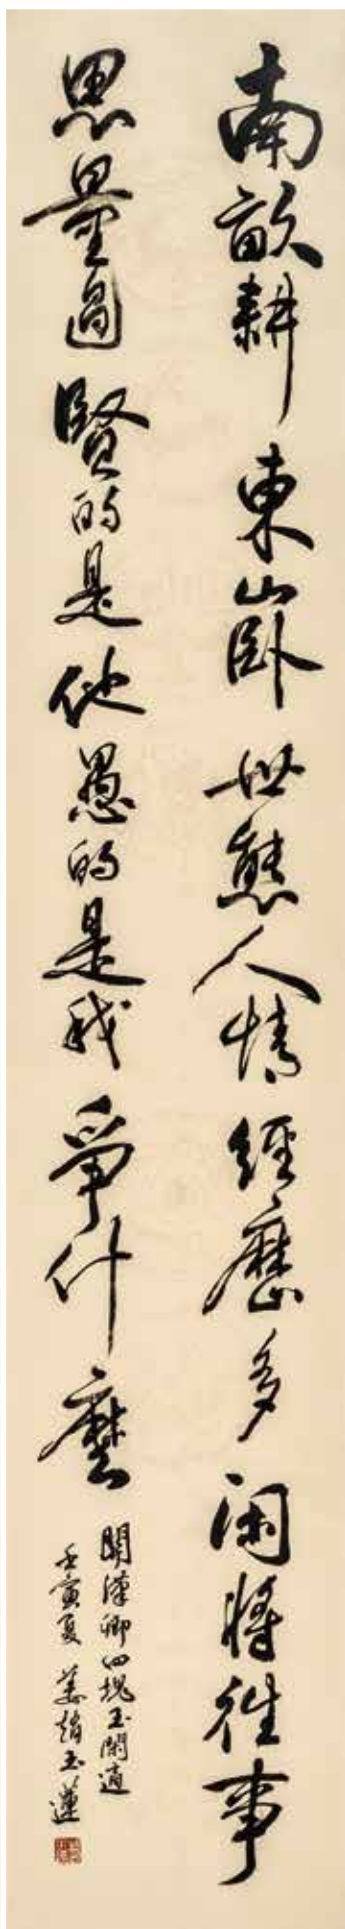 南畝耕東山卧世態人情經歷多閑將往事
思量過賢的是他愚的是我爭什麼
關漢卿四塊玉閑適
壬寅夏姜增玉蓮